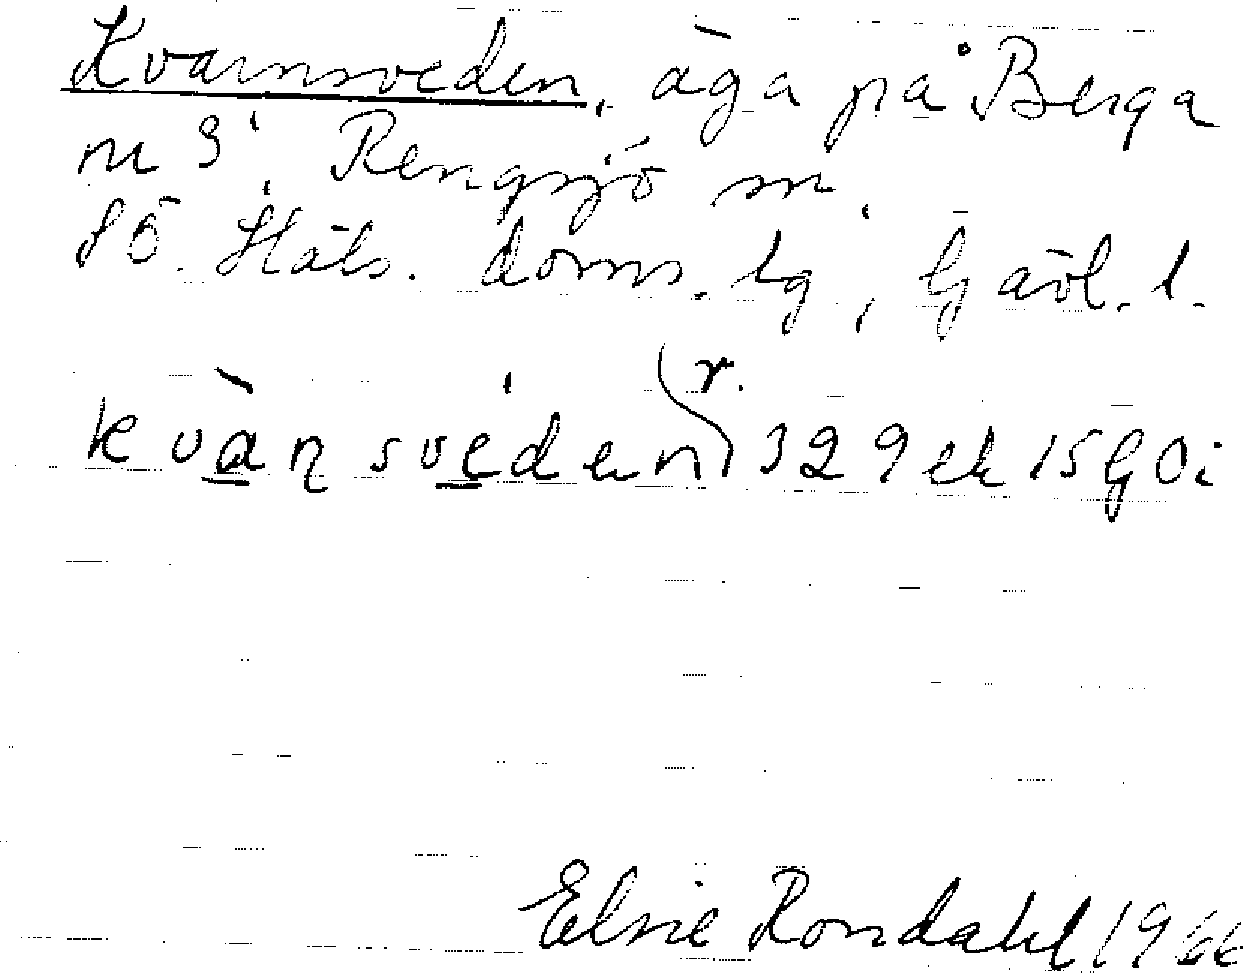 Kvarnsveden, äga på Berga
nr 3, Rengsjö sn,
SÖ. Häls. doms. lg, Gävl. l.
kvà̱ṇsvé̱den r. 329 ek 15G0i
Elsie Rondahl 1966